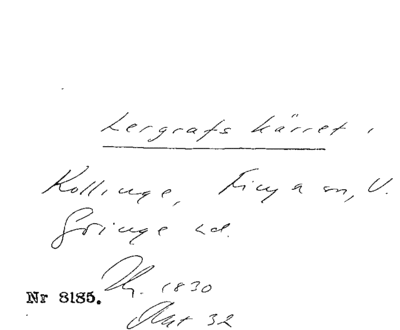 Lergrafs kärret,
Kollinge, Finja sn, V.
Göinge hd.
1830
Nr 8185.
Akt 32